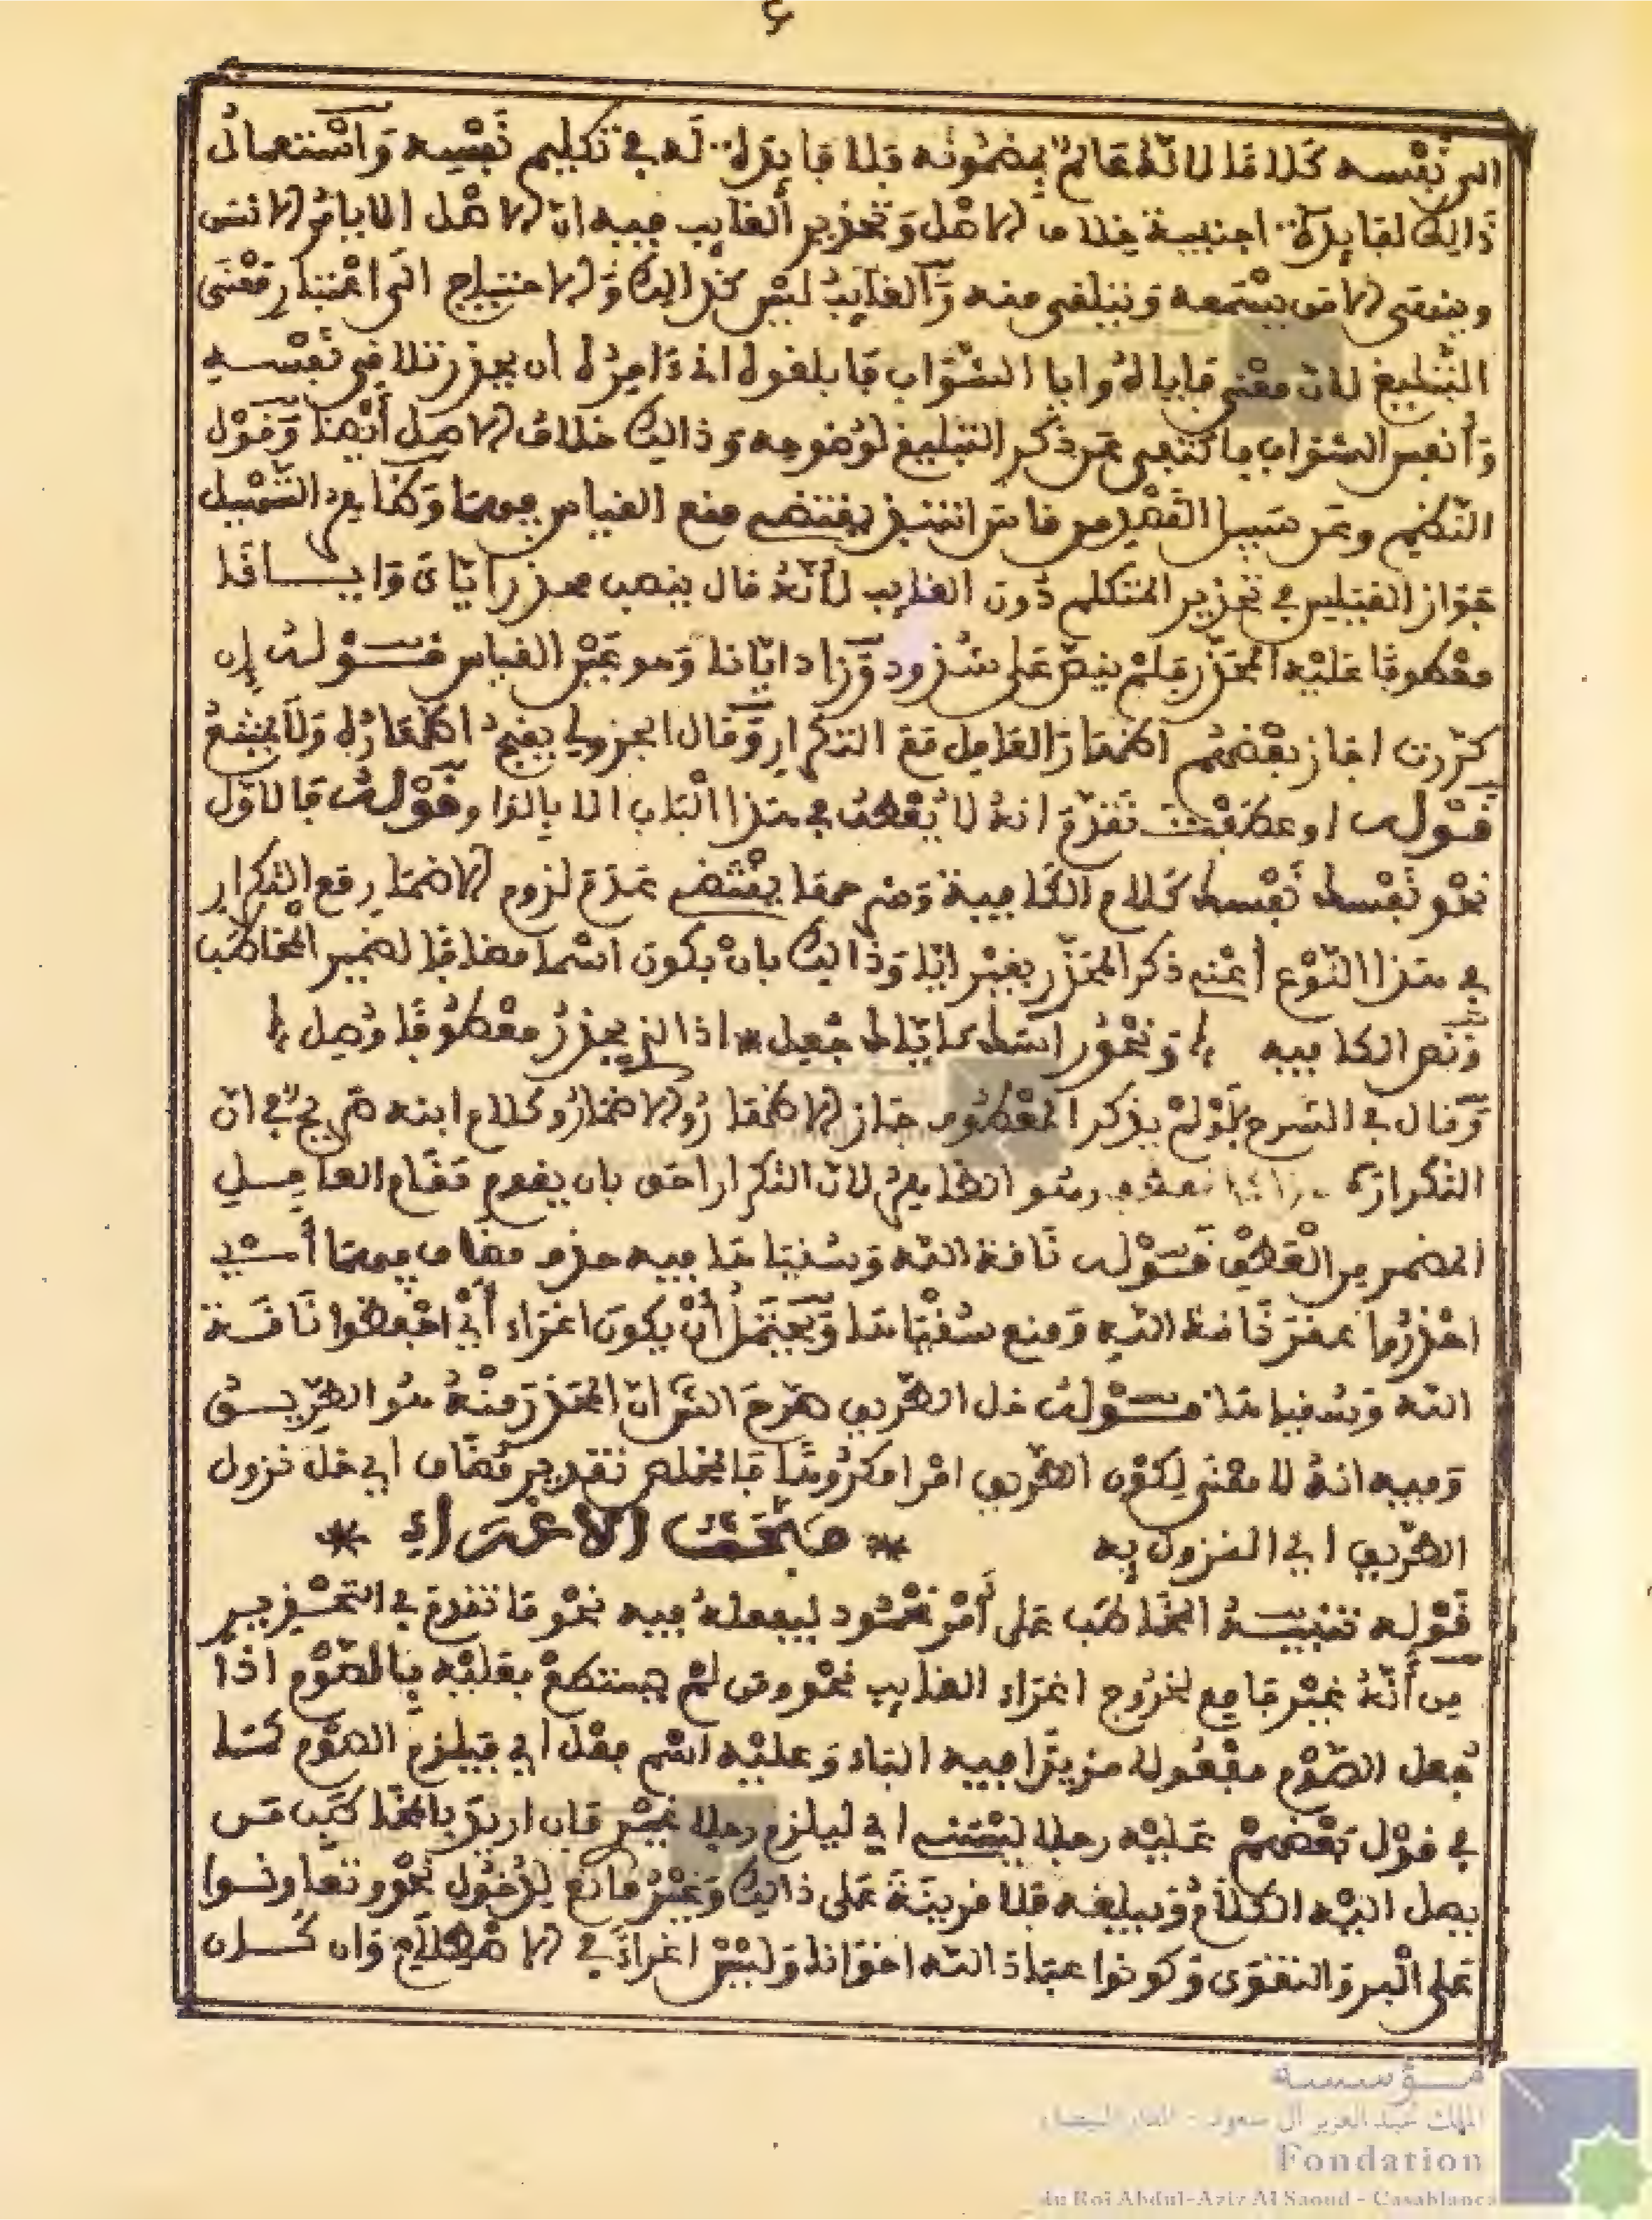 ٤
الى نفسه كلاما لانه عالم بمضمونه فلا فايدة له في تكليم نفسه واستعمال
ذالك لفايدة اجنبية خلاف الاصل وتحذير الغايب فيه ان الاصل ان لا يامر الانسان
وينهى الا من يسمعه ويتلقى منه والغايب ليس كذالك والاحتياج الى اعتبار معنى
التبليغ لان معنى فاياه وايا الشواب فابلغوه اني ءامره ان يحذر تلافي نفسه
وأنفس الشواب فاكتفى عن ذكر التبليغ لوضوحه وذالك خلاف الاصل أيضا وقول
النظم وعن سبيل القصد من قاس انتبذ يقتضي منع القياس فيهما وكذا في التسهيل
جواز القياس في تحذير المتكلم دون الغايب لأنه قال ينصب محذرا اياي وايانا
معطوفا عليه المحذر فلم ينص على شذوذ وزاد ايانا وهو غير القياس قوله ان
كررت اجاز بعضهم اظهار العامل مع التكرار وقال الجزولي يقبح اظهاره ولا يمتنع
قوله او عطفت تقدم انه لا يعطف في هذا الباب الا بالواو وقوله فالاول
نحو نفسك نفسك كلام الكافية وشرحها يقتضي عدم لزوم الاضمار مع التكرار
في هذا النوع أعني ذكر المحذر بغير ايا وذالك بان يكون اسما مضافا لضمير المخاطب
ونص الكافيه ؛ ونحو راسك كاياك جعل * اذا الذي يحذر معطوفا وصل ؛
وقال في الشرح فلو لم يذكر المعطوف جاز الاظهار والاضمار وكلام ابنه صريح في ان
التكرار وهو الظاهر لان التكرار احق بان يقوم مقام العامل
المضمر من العطف قوله ناقة الله وسقياها فيه حذف مضاف فيهما أي
احذروا عقر ناقة الله ومنع سقياها ويحتمل أن يكون اغراء أي احفظوا ناقة
الله وسقياها قوله خل الطريق صرح الش ان المحذر منه هو الطريق
وفيه انه لا معنى لكون الطريق امرا مكروها فالمخلص تقدير مضاف اي خل نزول
الطريق اي النزول به * مبحث الاغراء *
قوله تنبيه المخاطب على أمر محمود ليفعله فيه نحو ما تقدم في التحذير
من أنه غير جامع لخروج اغراء الغايب نحو ومن لم يستطع فعليه بالصوم اذا
جعل الصوم مفعولا مزيدا فيه الباء وعليه اسم فعل اي فيلزم الصوم كما
في قول بعضهم عليه رجلا ليسني اي ليلزم رجلا غيري فان اريد بالمخاطب من
يصل اليه الكلام ويبلغه فلا قرينة على ذالك وغير مانع لدخول نحو وتعاونوا
على البر والتقوى وكونوا عباد الله اخوانا وليس اغراء في الاصطلاح وان كان
مؤسسة
الملك عبد العزيز آل سعود - الدار البيضاء
Fondation
du Roi Abdul-Aziz Al Saoud - Casablanca